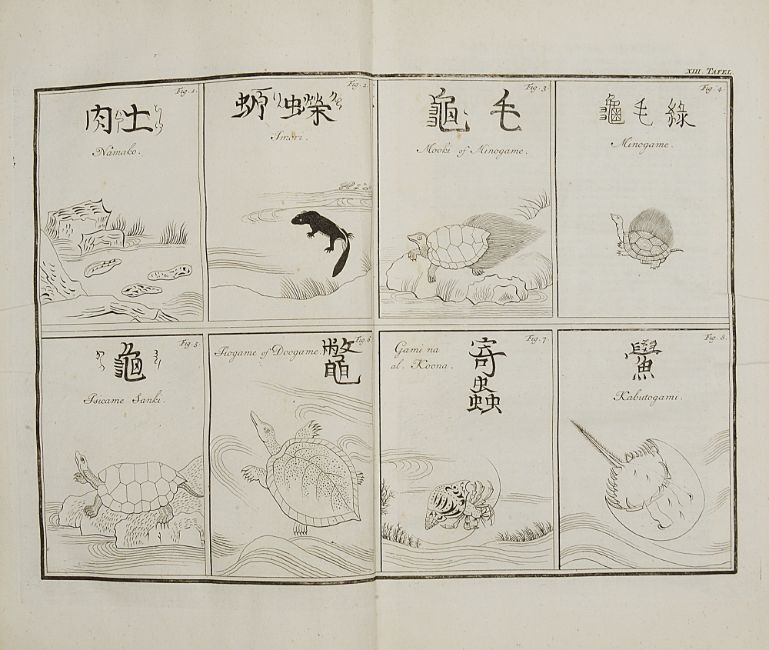 XIII. TAFEL
Fig. 1.
肉土
Namako.
Fig. 2.
蚖蠑
Imori.
Fig. 3.
龜毛
Mooki of Minogame.
Fig. 4.
龜毛綠
Minogame.
Fig. 5.
龜
Isicame Sanki.
Fig. 6.
Jogame of Doogame.
鼈
Fig. 7.
Gami na
al. Koona.
寄
蟲
Fig. 8.
鱟
Kabutogami.